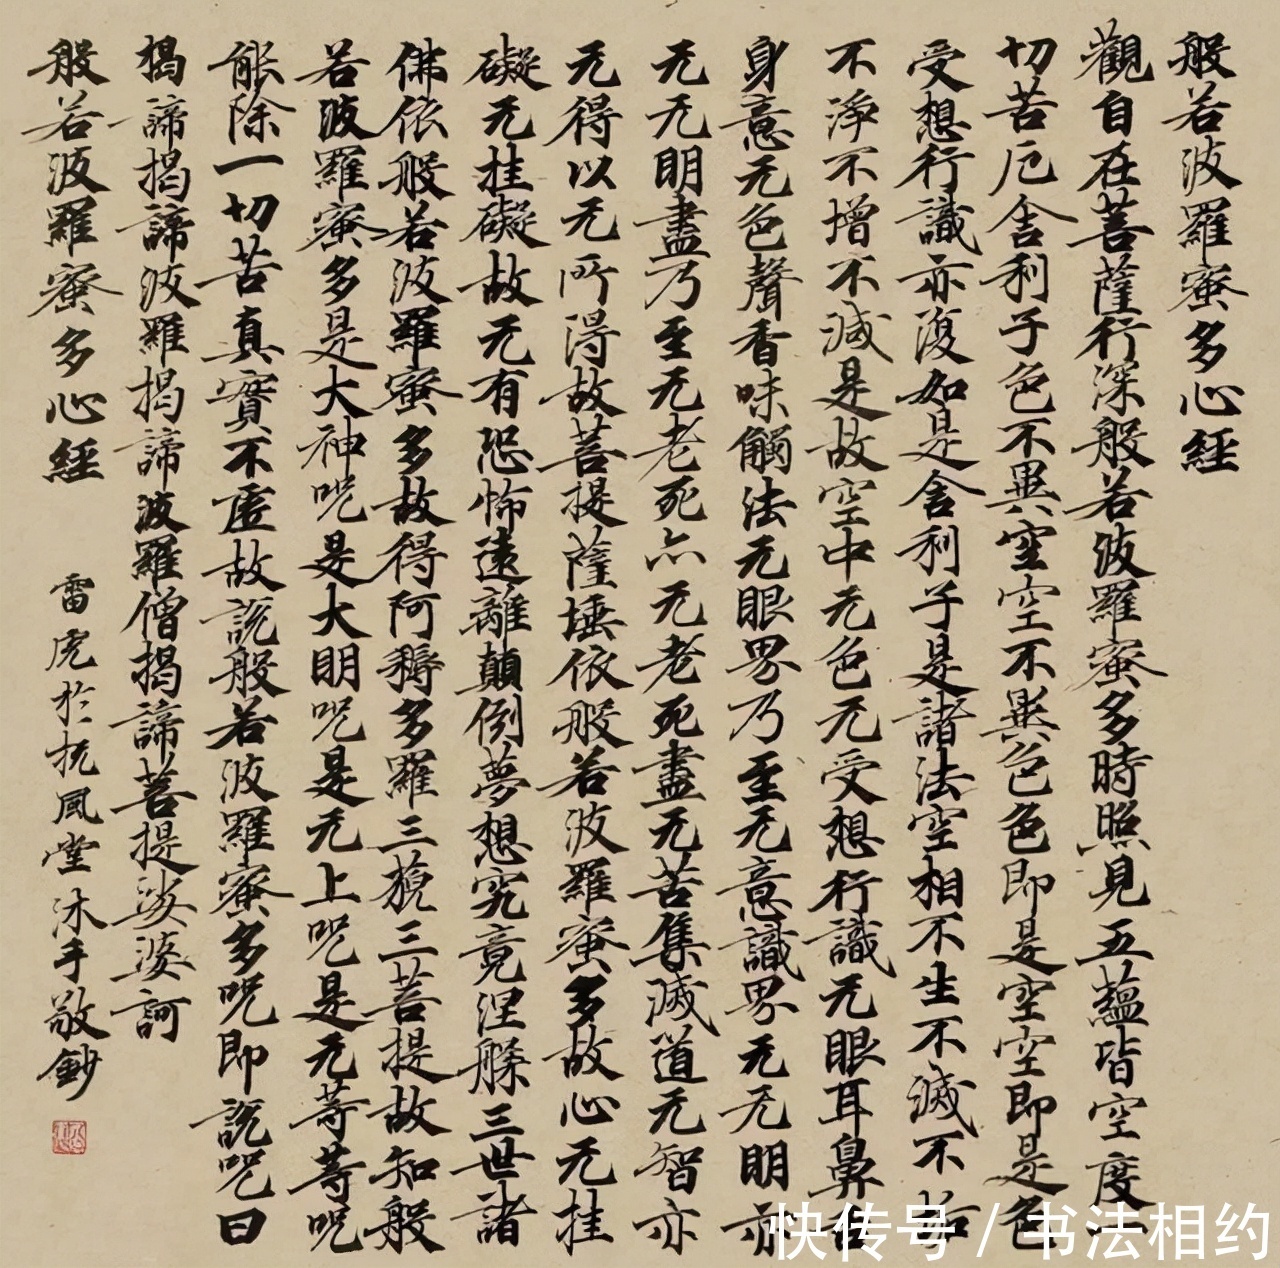 般若波羅蜜多心經
觀自在菩薩行深般若波羅蜜多時照見五蘊皆空度一
切苦厄舍利子色不異空空不異色色即是空空即是色
受想行識亦復如是舍利子是諸法空相不生不滅不垢
不淨不增不減是故空中无色无受想行識无眼耳鼻舌
身意无色聲香味觸法无眼界乃至无意識界无无明亦
无无明盡乃至无老死亦无老死盡无苦集滅道无智亦
无得以无所得故菩提薩埵依般若波羅蜜多故心无挂
礙无挂礙故无有恐怖遠離顛倒夢想究竟涅槃三世諸
佛依般若波羅蜜多故得阿耨多羅三藐三菩提故知般
若波羅蜜多是大神咒是大明咒是无上咒是无等等咒
能除一切苦真實不虛故說般若波羅蜜多咒即說咒曰
揭諦揭諦波羅揭諦波羅僧揭諦菩提娑婆訶
般若波羅蜜多心經
雷虎於抚風堂沐手敬鈔
快传号 / 书法相约